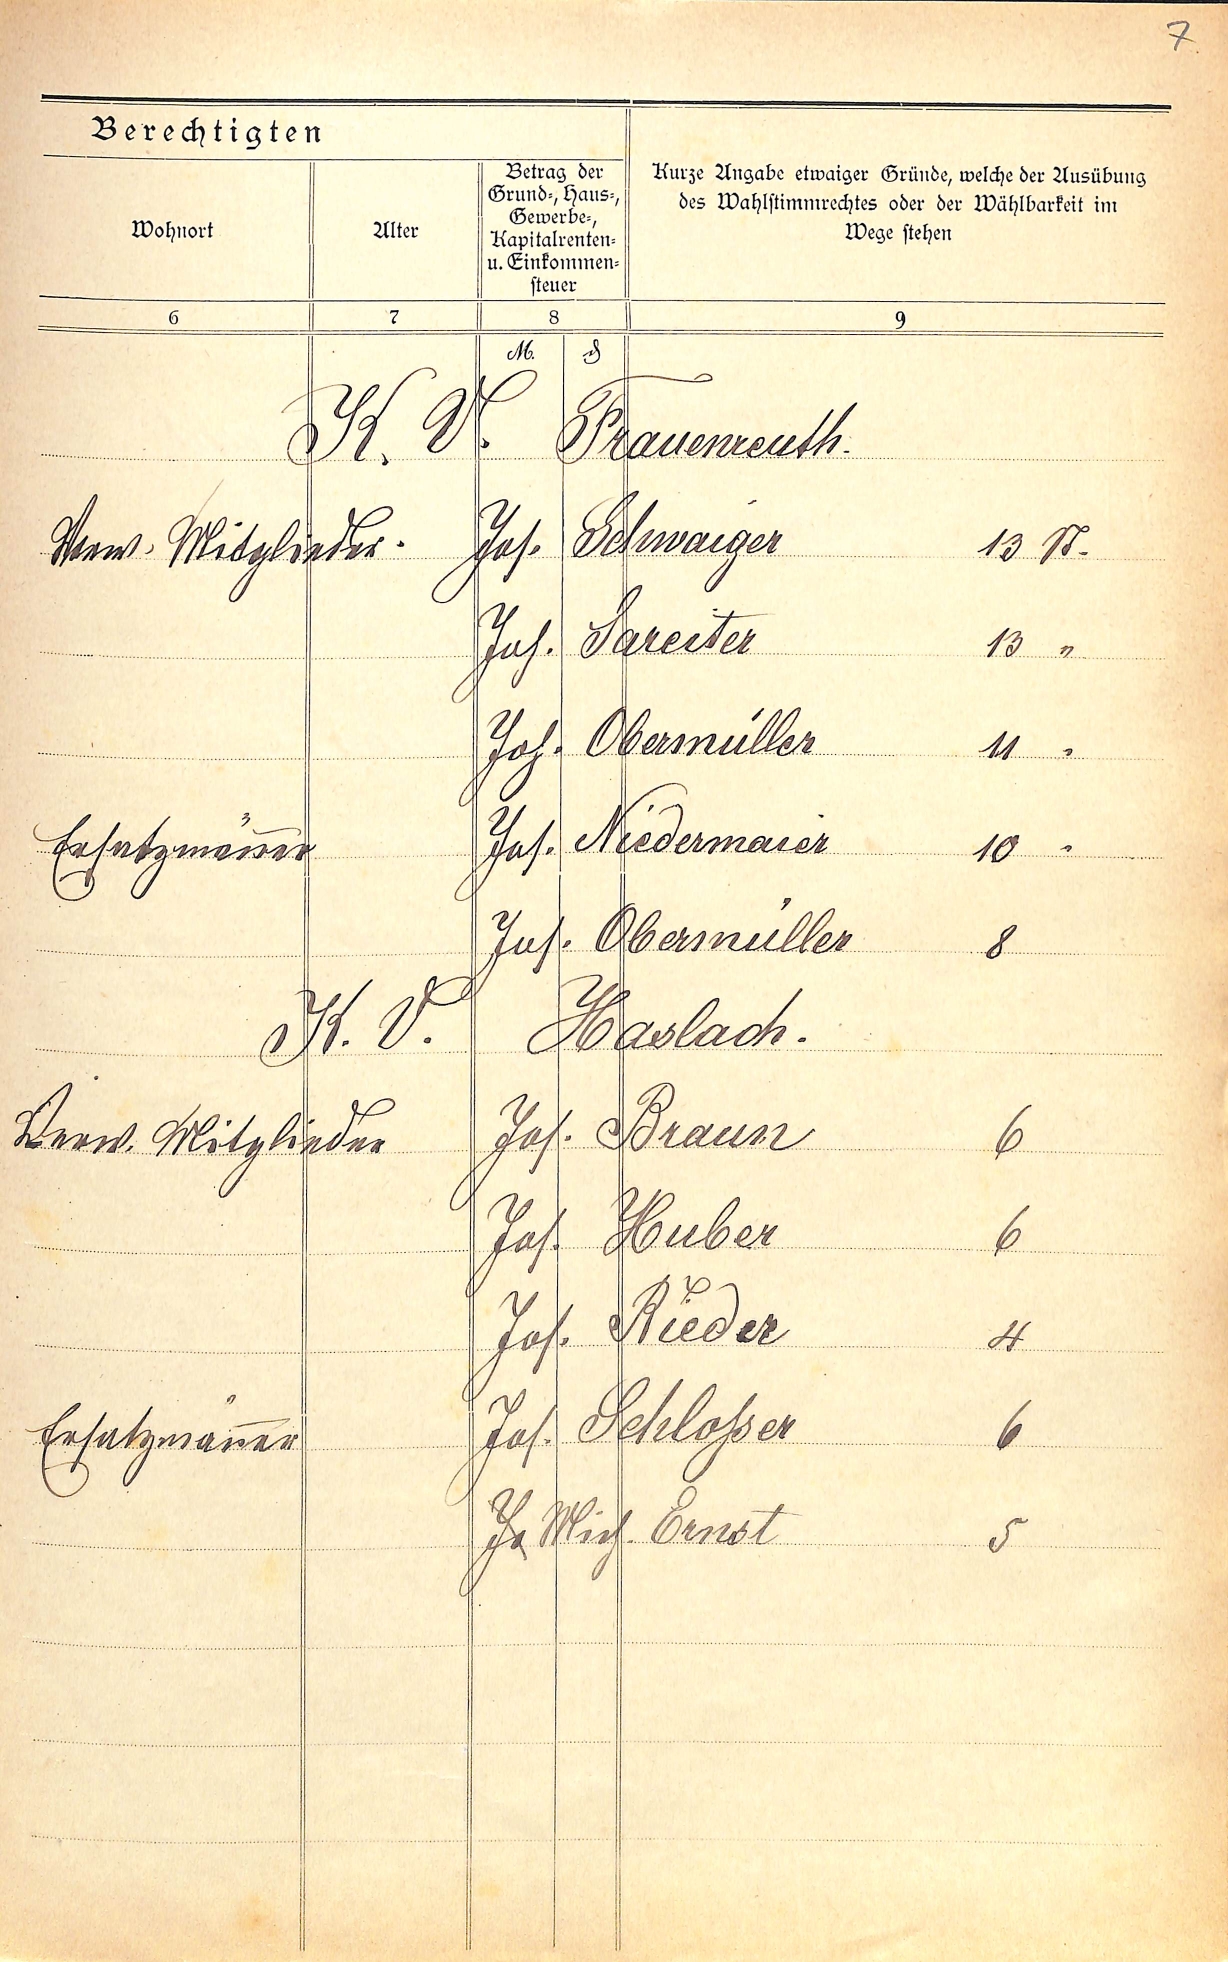 7
Berechtigten
Wohnort
Alter
Betrag der
Grund-, Haus-,
Gewerbe-,
Kapitalrenten-
u. Einkommen-
steuer
Kurze Angabe etwaiger Gründe, welche der Ausübung
des Wahlstimmrechtes oder der Wählbarkeit im
Wege stehen
6 7 8 9
M. ₰
K. V. Frauenreuth.
Verw. Mitglieder. Jos. Schwaiger 13 St.
Joh. Sareiter 13 "
Joh. Obermüller 11 "
Ersatzmänner Jos. Niedermaier 10 "
Jos. Obermüller 8
K. V. Haslach.
Verw. Mitglieder Jos. Braun 6
Jos. Huber 6
Jos. Rieder 4
Ersatzmänner Jos. Schlosser 6
Mich. Ernst 5